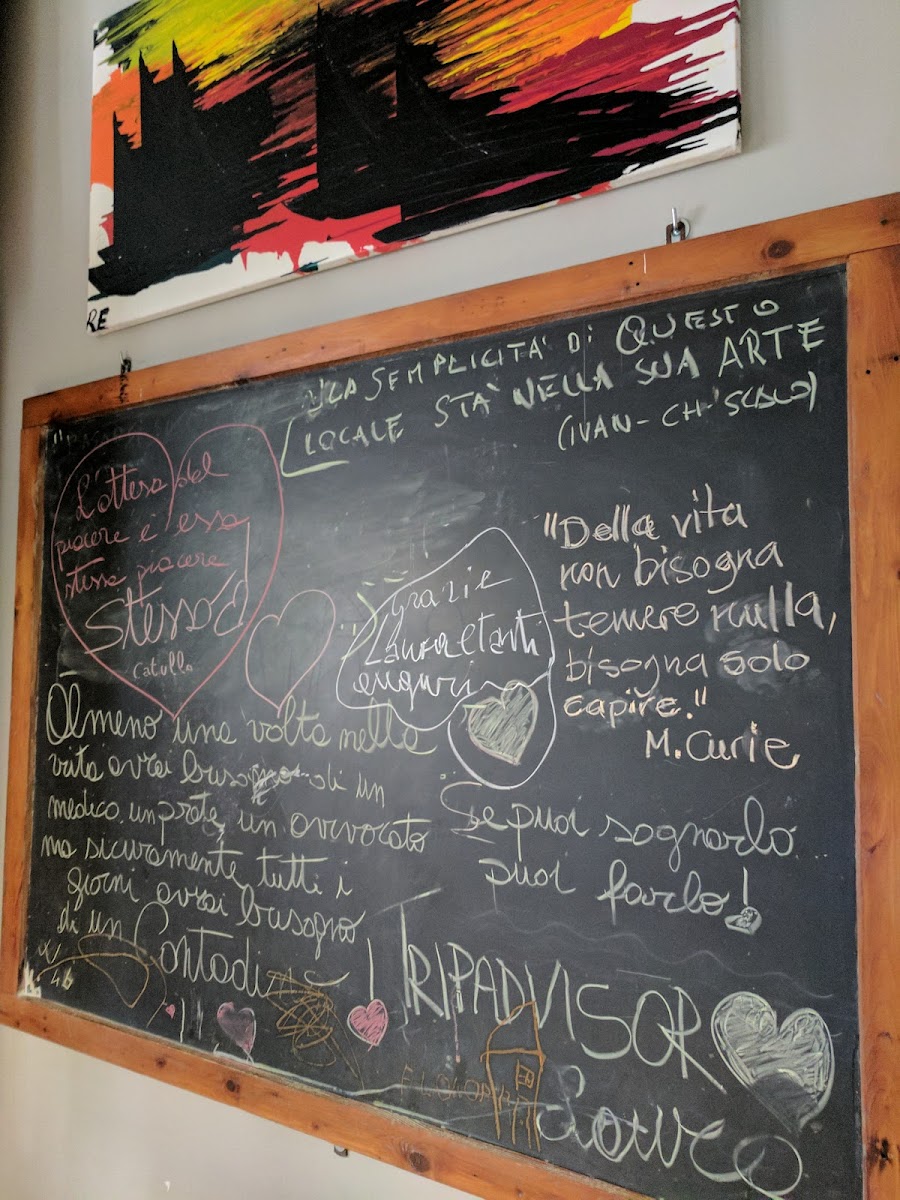 RE
LA SEMPLICITÀ DI QUESTO
LOCALE STÀ NELLA SUA ARTE
(IVAN - CH
L'attesa del
piacere è essa
stessa piacere
Stesso
Catullo
grazie
Laura e tanti
auguri
"Della vita
non bisogna
temere nulla,
bisogna solo
capire."
M. Curie
Almeno una volta nella
vita avrai bisogno di un
medico, un prete, un avvocato
ma sicuramente, tutti i
giorni avrai bisogno
di un Contadi
Se puoi sognarlo
puoi farlo!
TRIPADVISOR